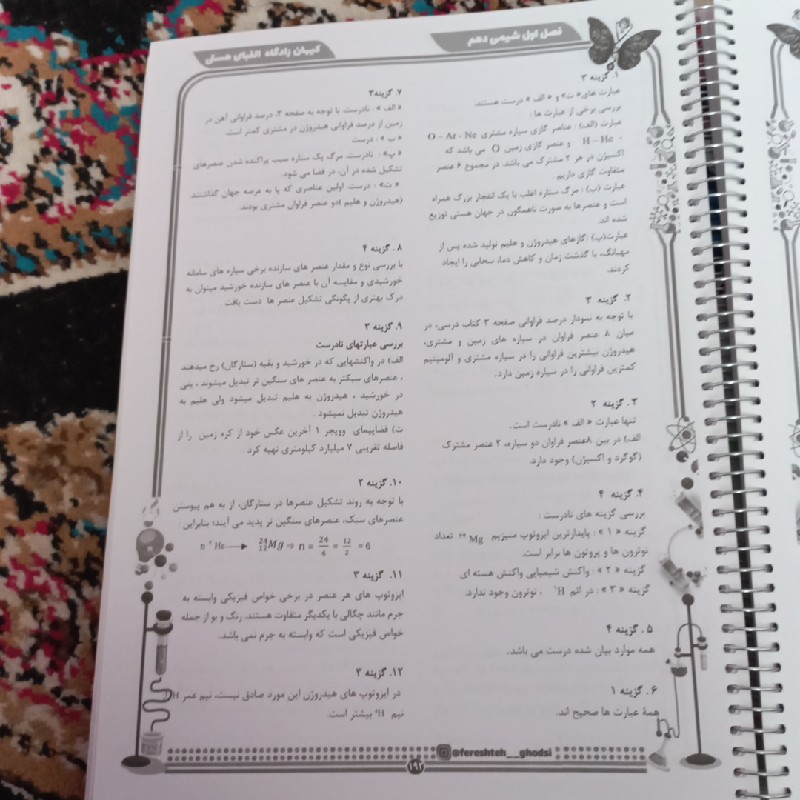 فصل اول شیمی دهم
کیهان زادگاه الفبای هستی
۱. گزینه ۳
عبارت های« ب» و « الف » درست هستند.
بررسی برخی از عبارت ها :
عبارت (الف) : عناصر گازی سیاره مشتری O – Ar - Ne
- H – He و عنصر گازی زمین O می باشد که
اکسیژن در هر ۲ مشترک می باشد. در مجموع ۶ عنصر
متفاوت گازی داریم.
عبارت (ب) : مرگ ستاره اغلب با یک انفجار بزرگ همراه
است و عنصرها به صورت ناهمگون در جهان هستی توزیع
شده اند.
عبارت(پ) :گازهای هیدروژن و هلیم تولید شده پس از
مهبانگ، با گذشت زمان و کاهش دما، سحابی را ایجاد
کردند.
۲. گزینه ۳
با توجه به نمودار درصد فراوانی صفحه ۳ کتاب درسی، در
میان ۸ عنصر فراوان در سیاره های زمین و مشتری،
هیدروژن بیشترین فراوانی را در سیاره مشتری و آلومینیم
کمترین فراوانی را در سیاره زمین دارد.
۳. گزینه ۲
تنها عبارت « الف » نادرست است.
الف) در بین ۸عنصر فراوان دو سیاره، ۲ عنصر مشترک
(گوگرد و اکسیژن) وجود دارد.
۴. گزینه ۴
بررسی گزینه های نادرست :
گزینه « ۱» : پایدارترین ایزوتوپ منیزیم ²⁴Mg تعداد
نوترون ها و پروتون ها برابر است.
گزینه « ۲ » : واکنش شیمیایی واکنش هسته ای
گزینه « ۳ » : در اتم ¹H ، نوترون وجود ندارد.
۵. گزینه ۴
همه موارد بیان شده درست می باشد.
۶. گزینه ۱
همهٔ عبارت ها صحیح اند.
۷. گزینه۲
« الف» : نادرست. با توجه به صفحه ۳، درصد فراوانی آهن در
زمین از درصد فراوانی هیدروژن در مشتری کمتر است.
« ب » : درست
«پ» : نادرست. مرگ یک ستاره سبب پراکنده شدن عنصرهای
تشکیل شده در آن، در فضا می شود.
« ت» : درست. اولین عناصری که پا به عرصه جهان گذاشتند
(هیدروژن و هلیم )دو عنصر فراوان مشتری بودند.
۸. گزینه ۴
با بررسی نوع و مقدار عنصر های سازنده برخی سیاره های سامانه
خورشیدی و مقایسه آن با عنصر های سازنده خورشید میتوان به
درک بهتری از چگونگی تشکیل عنصر ها دست یافت
۹. گزینه ۳
بررسی عبارتهای نادرست
الف) در واکنشهایی که در خورشید و بقیه (ستارگان) رخ میدهند
، عنصرهای سبکتر به عنصر های سنگین تر تبدیل میشوند ، ینی
در خورشید ، هیدروژن به هلیم تبدیل میشود ولی هلیم به
هیدروژن تبدیل نمیشود .
ت) فضاپیمای وویجر ۱ آخرین عکس خود از کره زمین را از
فاصله تقریبی ۷ میلیارد کیلومتری تهیه کرد.
۱۰. گزینه ۲
با توجه به روند تشکیل عنصرها در ستارگان، از به هم پیوستن
عنصرهای سبک، عنصرهای سنگین تر پدید می آیند؛ بنابراین :
n ⁴ He → ²⁴₁₂Mg ⇒ n = 24/4 = 12/2 = 6
۱۱. گزینه ۳
ایزوتوپ های هر عنصر در برخی خواص فیزیکی وابسته به
جرم مانند چگالی با یکدیگر متفاوت هستند. رنگ و بو از جمله
خواص فیزیکی است که وابسته به جرم نمی باشد.
۱۲. گزینه ۳
در ایزوتوپ های هیدروژن این مورد صادق نیست، نیم عمر H
نیم H بیشتر است.
@fereshteh__ghodsi
۱۹۲